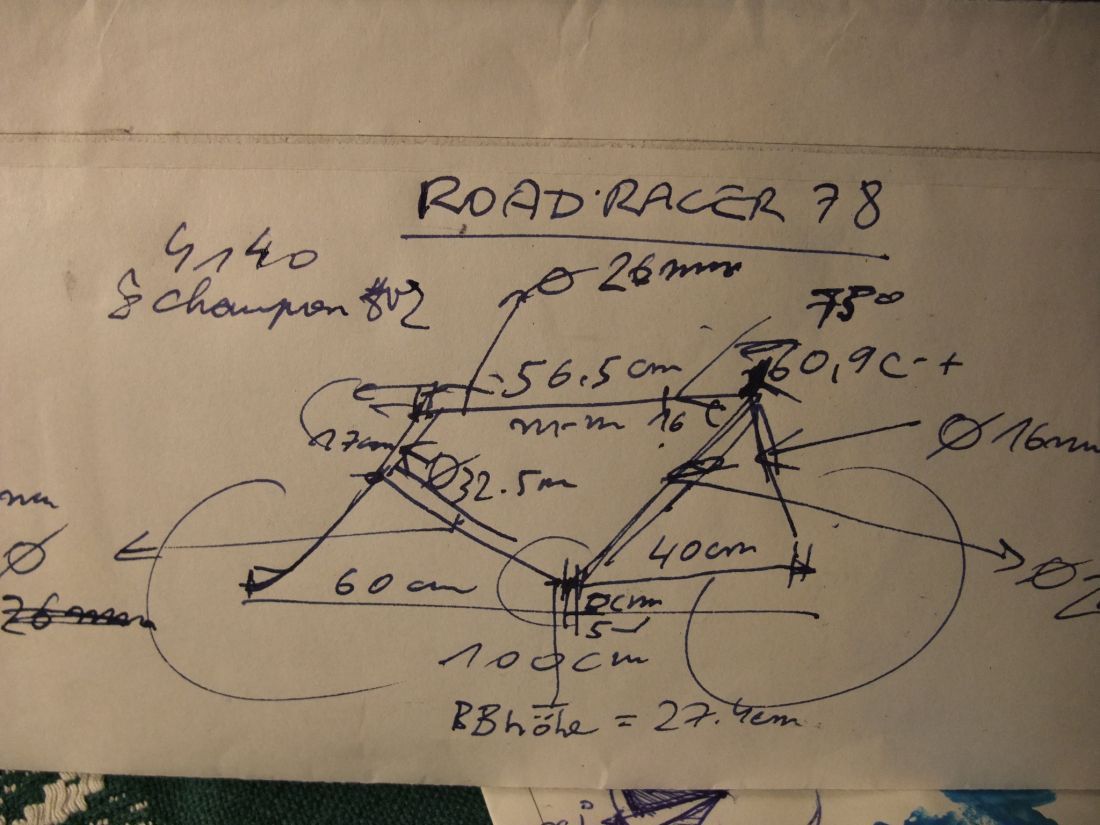 ROAD RACER 78
4140
Champion
Ø 26mm
75°
56.5cm
60,9 C-+
m-m
16
17cm
Ø 16mm
Ø32.5m
mm
Ø
26mm
40cm
60cm
Ø2
100cm
BBhöhe = 27.4cm